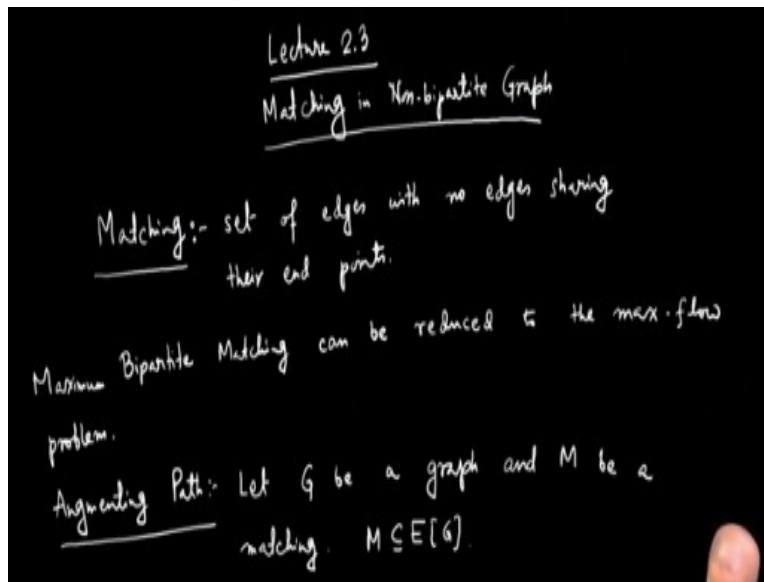 Lecture 2.3
Matching in Non-bipartite Graph
Matching:- set of edges with no edges sharing
their end points.
Maximum Bipartite Matching can be reduced to the max-flow
problem.
Augmenting Path:- Let G be a graph and M be a
matching. M ⊆ E[G].